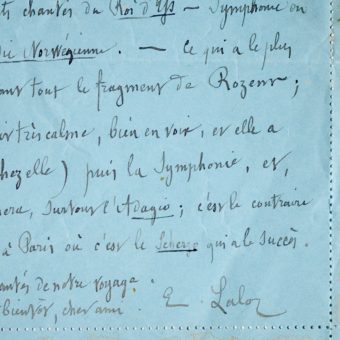 ts chantés du Roi d'Ys — Symphonie en
die Norwégienne. — ce qui a le plus
tout le fragment de Rozenn;
très calme, bien en voix, et elle a
chez elle) puis la Symphonie, et,
surtout l'Adagio; c'est le contraire
à Paris où c'est le Scherzo qui a le succès.
de notre voyage
bientôt, cher ami. E. Lalo